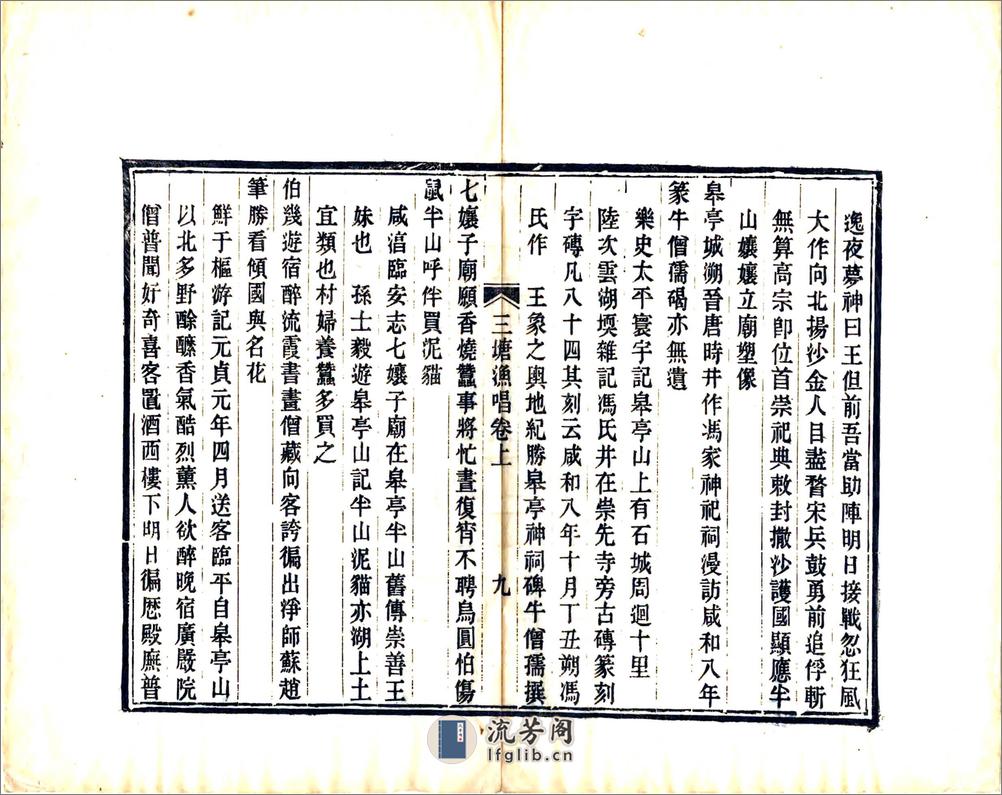 逸夜夢神曰王但前吾當助陣明日接戰忽狂風
大作向北揚沙金人目盡瞀宋兵鼓勇前追俘斬
無算高宗卽位首崇祀典敕封撒沙護國顯應半
山孃孃立廟塑像
臯亭城溯晉唐時井作馮家神祀祠漫訪咸和八年
篆牛僧孺碣亦無遺
樂史太平寰宇記臯亭山上有石城周迴十里
陸次雲湖壖雜記馮氏井在崇先寺旁古磚篆刻
字磚凡八十四其刻云咸和八年十月丁丑朔馮
氏作　王象之輿地紀勝臯亭神祠碑牛僧孺撰
三塘漁唱卷上　九
七孃子廟願香燒蠶事將忙晝復宵不聘烏圓怕傷
鼠半山呼伴買泥貓
咸淳臨安志七孃子廟在臯亭半山舊傳崇善王
妹也　孫士毅遊臯亭山記半山泥貓亦湖上土
宜類也村婦養蠶多買之
伯幾遊宿醉流霞書畫僧藏向客誇徧出淨師蘇趙
筆勝看傾國與名花
鮮于樞游記元貞元年四月送客臨平自臯亭山
以北多野酴醾香氣酷烈薰人欲醉晚宿廣嚴院
僧普聞好奇喜客置酒西樓下明日徧歷殿廡普
流芳阁
lfglib.cn